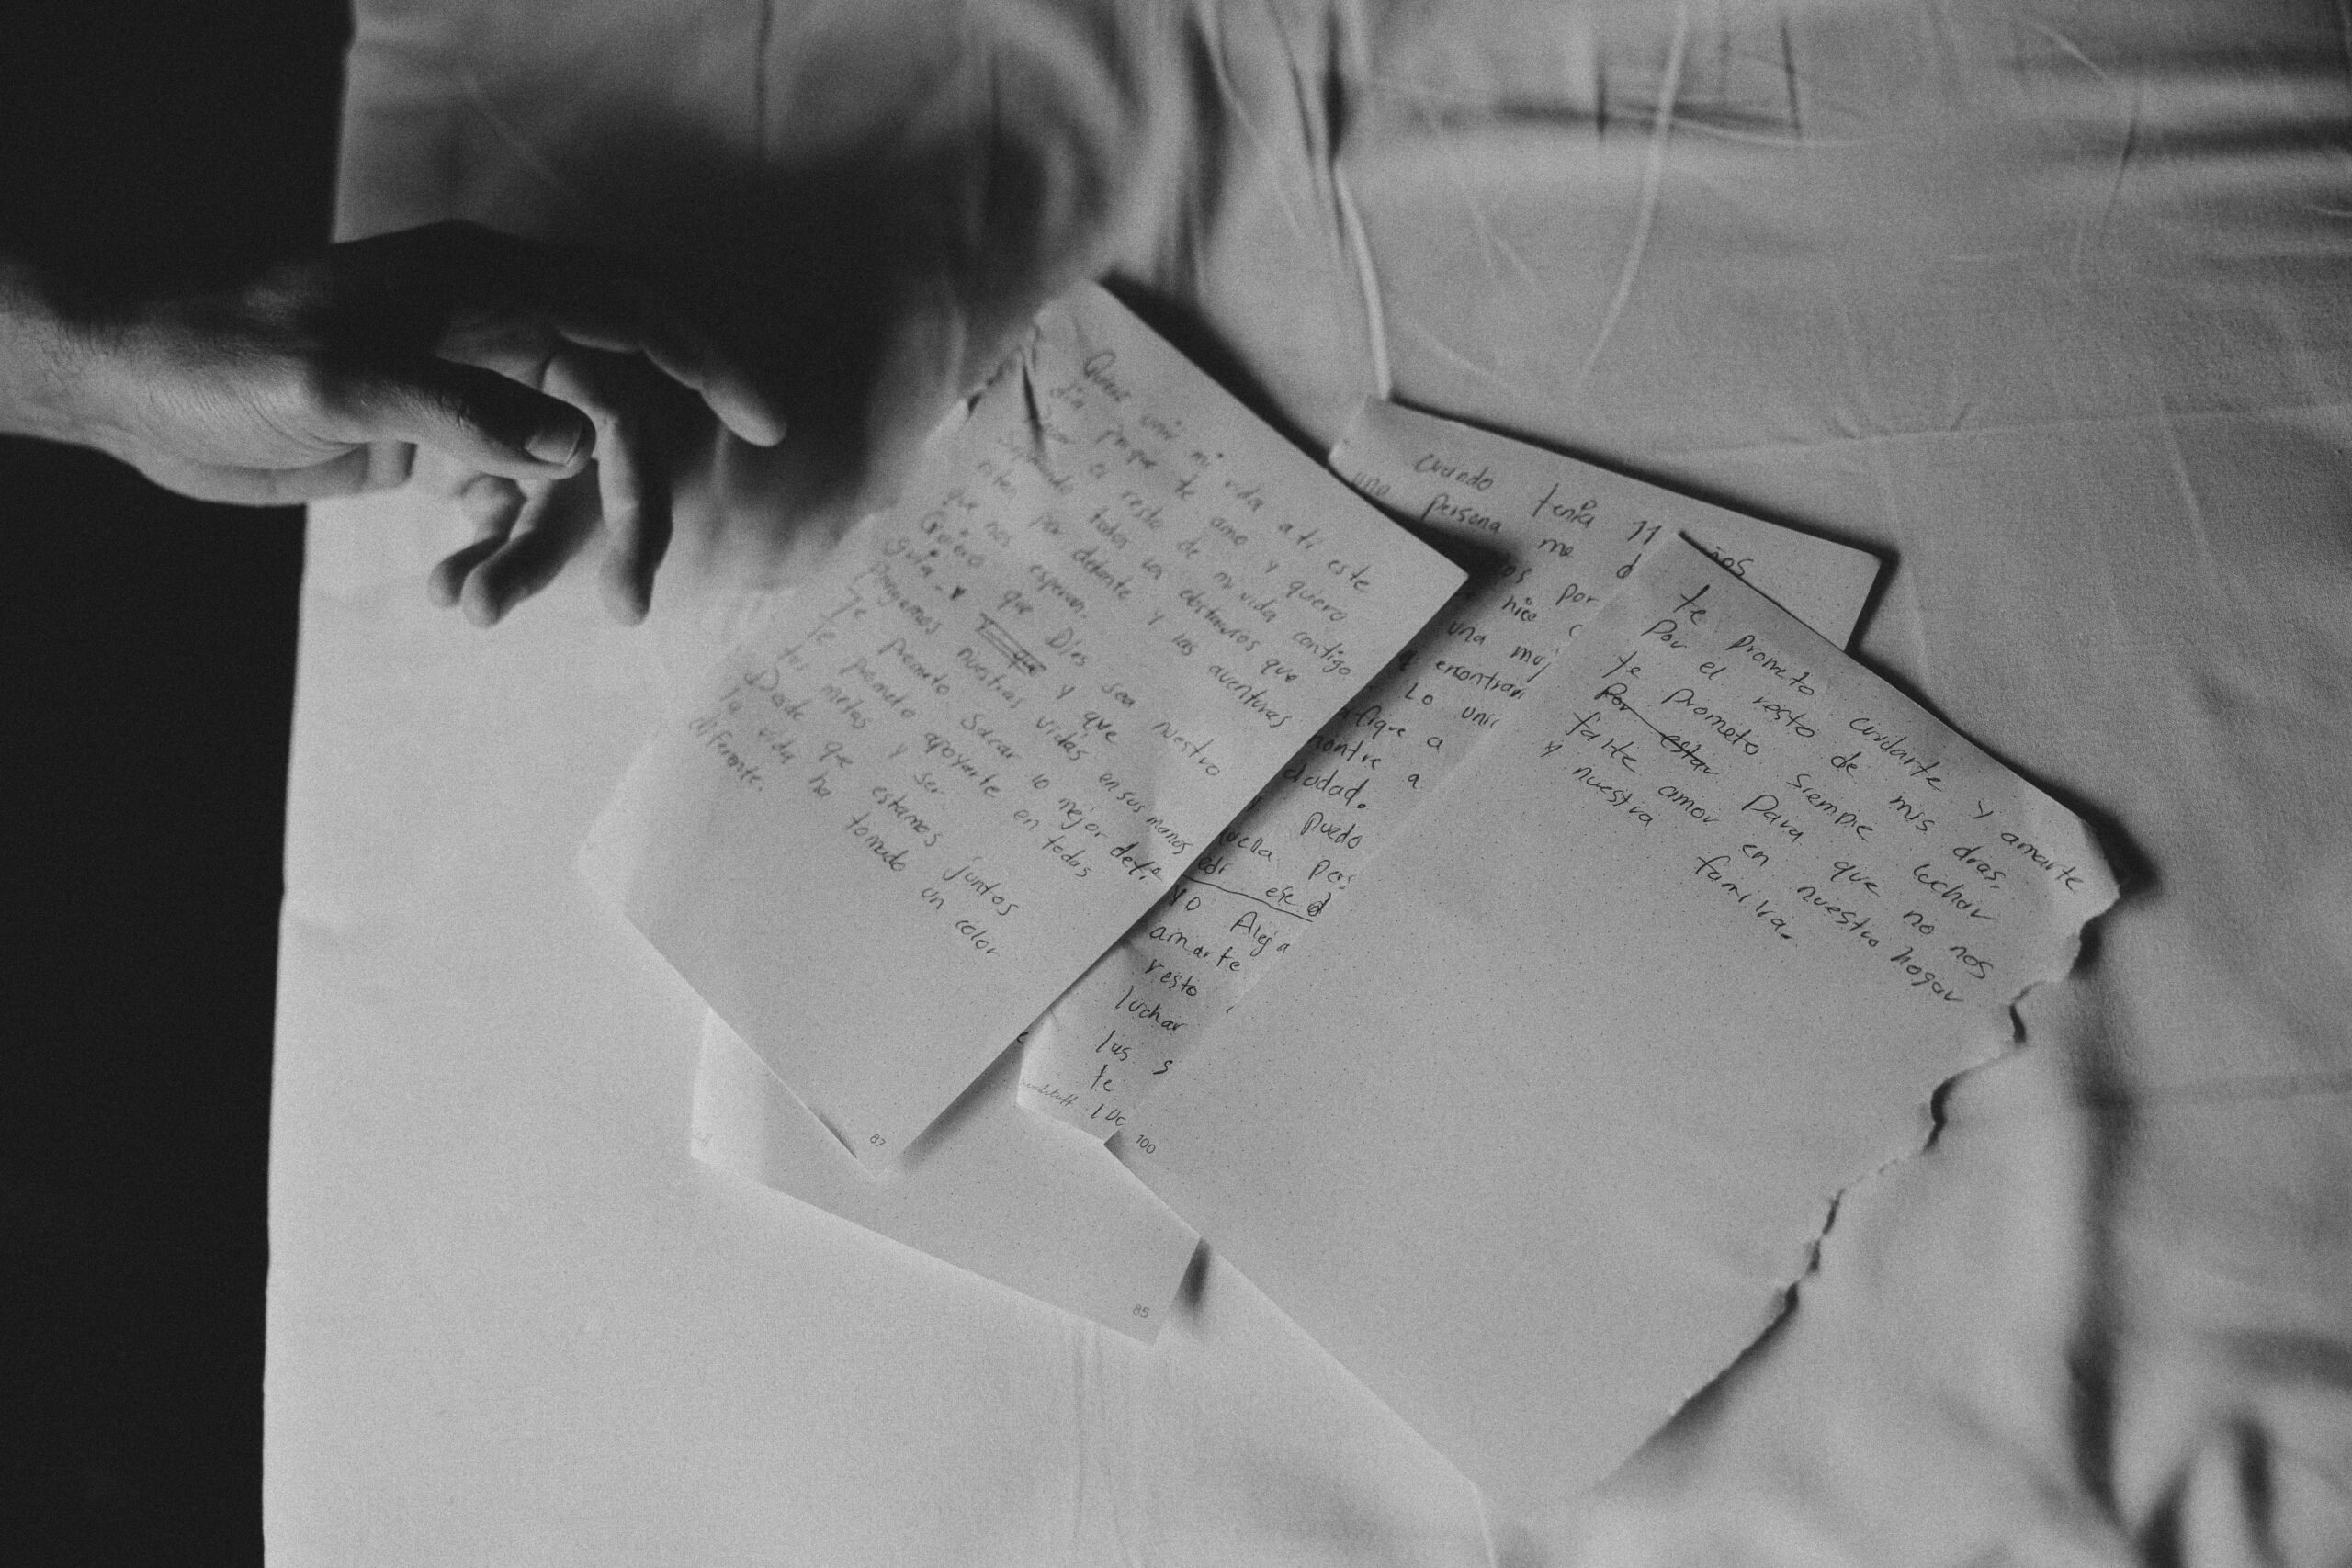 Quise unir mi vida a ti este
día porque te amo y quiero
el resto de mi vida contigo
superando todos los obstaculos que
esten por delante y las aventuras
que nos esperan.
Quiero que Dios sea nuestro
guía y que
pongamos nuestras vidas en sus manos
Te prometo sacar lo mejor de ti
Te prometo apoyarte en todas
tus metas y ser
Desde que estamos juntos
la vida ha tomado un color
diferente.
87
85
cuando tenía 11 años
una persona me d
os por
hice c
una muj
encontrar
Lo unic
ifique a
contre a
ciudad.
puedo
uella pers
edi ese d
yo Aleja
amarte
resto
luchar
las s
te
luc
te prometo cuidarte y amarte
por el resto de mis días.
te prometo siempre luchar
por estar para que no nos
falte amor en nuestro hogar
y nuestra familia.
100